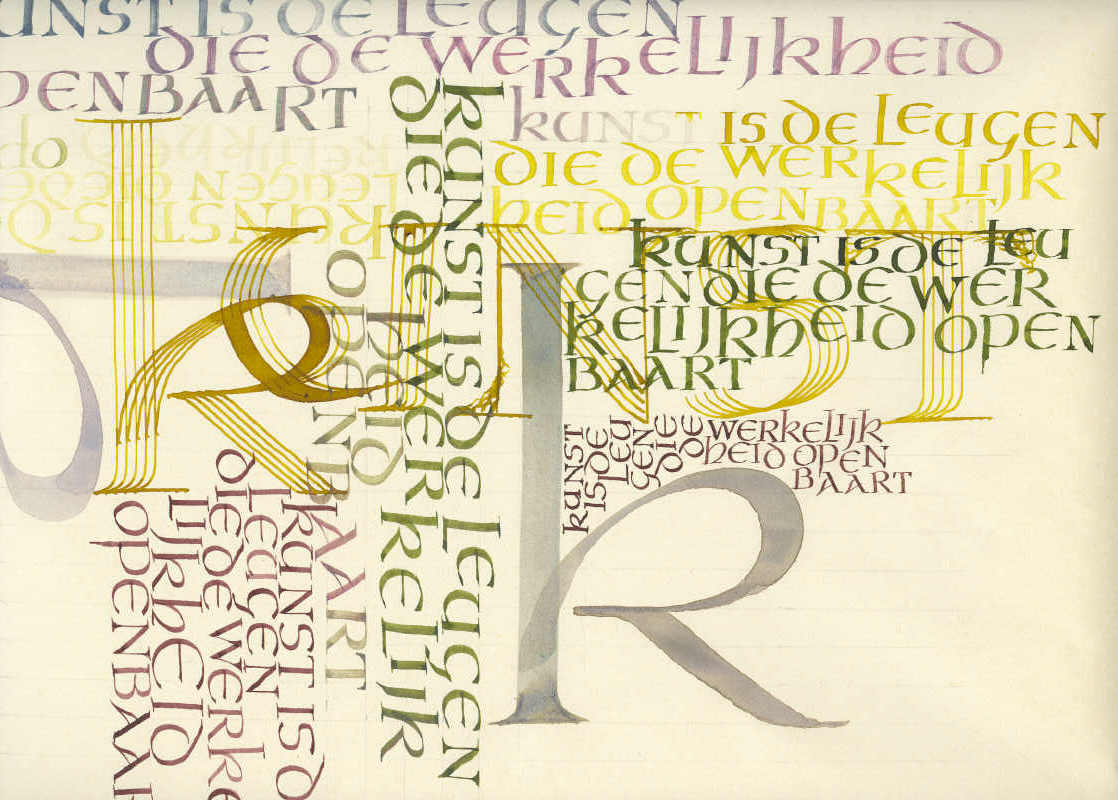 unst is de leugen
die de werkelijkheid
openbaart
kunst is de leugen
die de werkelijk
heid openbaart
kunst
kunst is de leu
gen die de wer
kelijkheid open
baart
kunst
is de
leu
gen
die
de
werkelijk
heid open
baart
kunst is de leugen
die de werkelijk
heid
openbaart
kunst is d
leugen
die de werke
lijkheid
openbaar
kunst is d
leugen die de
k